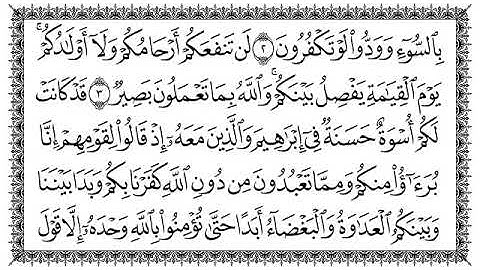 بِالسُّوٓءِ وَوَدُّوا۟ لَوْ تَكْفُرُونَ ۝٢ لَن تَنفَعَكُمْ أَرْحَامُكُمْ وَلَآ أَوْلَٰدُكُمْ ۚ
يَوْمَ ٱلْقِيَٰمَةِ يَفْصِلُ بَيْنَكُمْ ۚ وَٱللَّهُ بِمَا تَعْمَلُونَ بَصِيرٌ ۝٣ قَدْ كَانَتْ
لَكُمْ أُسْوَةٌ حَسَنَةٌ فِىٓ إِبْرَٰهِيمَ وَٱلَّذِينَ مَعَهُۥٓ إِذْ قَالُوا۟ لِقَوْمِهِمْ إِنَّا
بُرَءَٰٓؤُا۟ مِنكُمْ وَمِمَّا تَعْبُدُونَ مِن دُونِ ٱللَّهِ كَفَرْنَا بِكُمْ وَبَدَا بَيْنَنَا
وَبَيْنَكُمُ ٱلْعَدَٰوَةُ وَٱلْبَغْضَآءُ أَبَدًا حَتَّىٰ تُؤْمِنُوا۟ بِٱللَّهِ وَحْدَهُۥٓ إِلَّا قَوْلَ